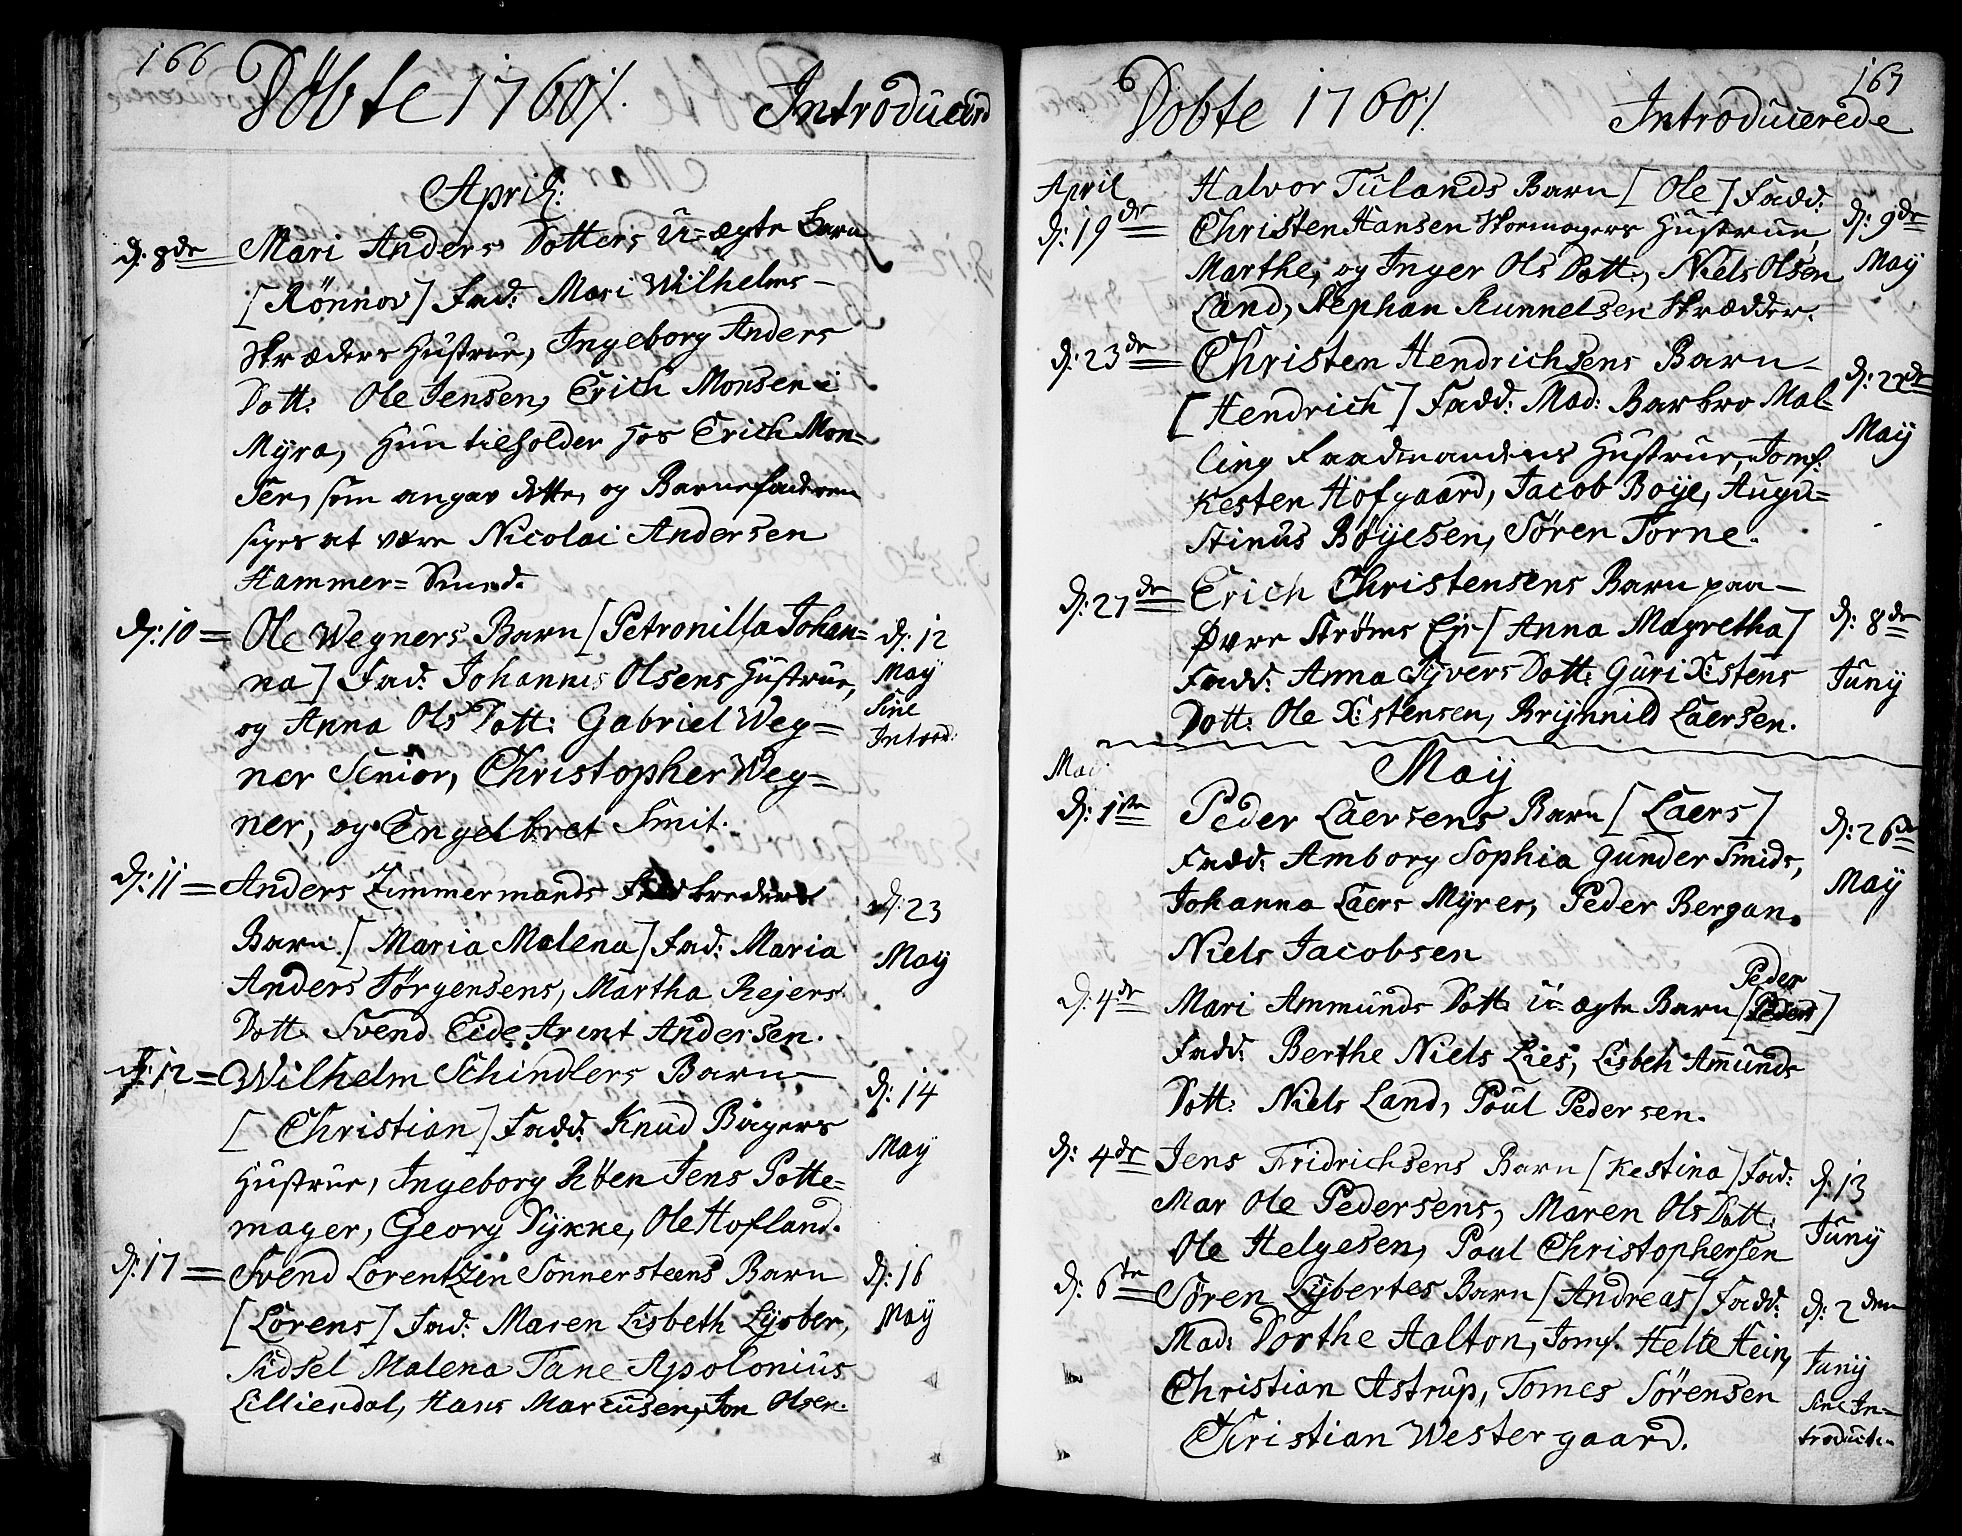 166
Döbte 1760 ⁒ Introducerd
April:
d: 8de Mari Anders Dotters U-ægte Barn
[Rönnov] Fad: Mari Wilhelms
Skræders Hustrue, Ingeborg Anders
Dott: Ole Jensen, Erich Monsen i
Myra, hun tilholder hos Erich Mon=
sen, som angav dette, og Barnefaderen
siges at være Nicolai Andersen
Hammer= Smed.
d: 10 = Ole Wegners Barn [Petronilla Johan= d: 12
na] Fad: Johannes Olsens Hustrue, May
og Anna Ols Dott: Gabriel Weg= Sine
Introd:
ner Senior, Christopher Weg=
ner, og Engelbret Smit.
d: 11 = Anders Zimmermands d: 23
Barn [Maria Malena] Fad: Maria May
Anders Jörgensens, Martha Rejers
Dott. Svend Eide, Arent Andersen.
d: 12 = Wilhelm Schindlers Barn d: 14
[Christian] Fadd: Knud Bagers May
Hustrue, Ingeborg Röen Jens Potte=
mager, Georg Dykke, Ole Hofland.
d: 17 = Svend Lorentzen Sonnersteens Barn d: 16
[Lorens] Fad: Maren Lisbeth Lysber, May
Sidsel Malena Tane Apolonius
Lilliendal, Hans Marcusen, Jon Olsen.
167
Dobte 1760 ⁒ Introducerede
April Halvor Tulands Barn [Ole] Fadd:
d: 19de Christen Hansen Skomagers Hustrue, d: 9de
Marthe, og Inger Ols Dott:, Niels Olsen May
Land, Stephan Runnelsen Skrædder.
d: 23de Christen Hendrichsens Barn
[Hendrich] Fadd: Mad: Barbro Mal= d: 22de
ling Hustrue, Jomf. May
Kesten Hofgaard, Jacob Boye, Augu=
stinus Böyesen, Sören Torne.
d: 27de Erich Christensens Barn paa
Øvre Strøms Eje [Anna Magretha] d: 8de
Fadd: Anna Syvers Dott: Guri Xstens Juny
Dott: Ole Xstensen, Brynnild Laersen.
May
d: 1ste Peder Laersens Barn [Laers] d: 26de
Fadd: Amborg Sophia Gunder Smids, May
Johanna Laers Myrer, Peder Bergan.
Niels Jacobsen
Peder
d: 4de Mari Ammunds Dott: U-ægte Barn [Peders]
Fadd: Berthe Niels Lies, Lisbeh Amunds
Dott: Niels Land, Poul Pedersen.
d: 4de Jens Fridrichsens Barn [Kestina] Fad: d: 13
Mar Ole Pedersens, Maren Ols Dott: Juny
Ole Helgesen, Poul Christophersen
d: 6te Sören Lybertes Barn [Andreas] Fadd: d: 2den
Mad: Dorthe Aalton, Jomf. Helte Hein, Juny
Christian Astrup, Tomes Sörensen Sine In=
Christian Westergaard. troduct: